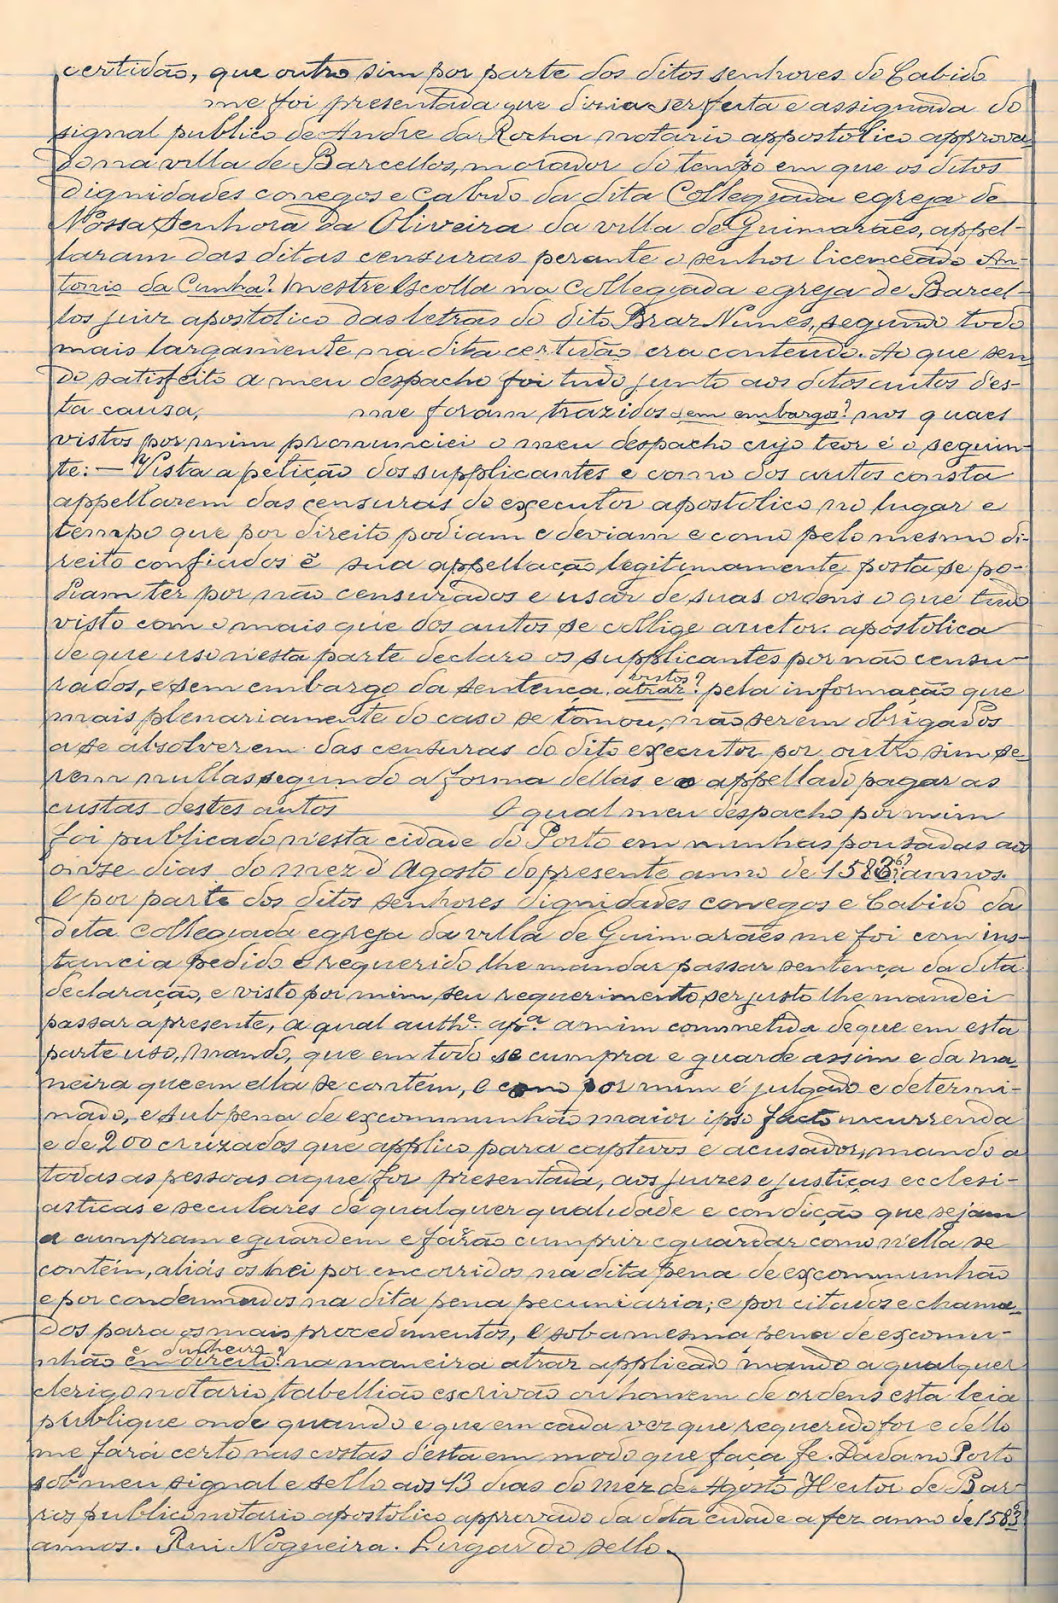 certidão, que outro sim por parte dos ditos senhores do Cabido
me foi presentada que dizia ser feita e assignada do
signal publico de Andre da Rocha notario appostolico approva-
do na villa de Barcellos, morador do tempo em que os ditos
dignidades conegos e Cabido da dita Collegiada egreja de
Nossa Senhora da Oliveira da villa de Guimarães, appel-
laram das ditas censuras perante o senhor licenceado An-
tonio da Cunha? Mestre Escolla na Collegiada egreja de Barcel-
los juiz apostolico das letras do dito Braz Nunes, segundo todo
mais largamente na dita certidão era contendo. Ao que sen-
do satisfeito a meu despacho foi tudo junto aos ditos autos des-
ta causa, me foram trazidos sem embargos? nos quaes
vistos por mim pronunciei o meu despacho cujo teor é o seguin-
te: — Vista a petição dos supplicantes e como dos autos consta
appellarem das censuras do executor apostolico no lugar e
tempo que por direito podiam e deviam e como pelo mesmo di-
reito confiados ẽ sua appellação legitimamente posta se po-
diam ter por não censurados e usar de suas ordens o que tudo
visto com o mais que dos autos se collige auctor. apostolica
de que uso n'esta parte declaro os supplicantes por não censu-
rados, e sem embargo da sentença atraz? vistos? pela informação que
mais plenariamente do caso se tomou, não serem obrigados
a se absolverem das censuras do dito executor por outro sim se-
rem nullas segundo a forma dellas e o appellado pagar as
custas destes autos O qual meu despacho por mim
foi publicado n'esta cidade do Porto em minhas pousadas aos
onze dias do mez d'Agosto do presente anno de 1583 6? annos.
E por parte dos ditos senhores dignidades conegos e Cabido da
dita Collegiada egreja da villa de Guimarães me foi com ins-
tancia pedido e requerido lhe mandar passar sentença da dita
declaração, e visto por mim seu requerimento ser justo lhe mandei
passar a presente, a qual authe. apa. a mim commetida de que em esta
parte uso, mando, que em todo se cumpra e guarde assim e da ma-
neira que em ella se contém, e como por mim é julgado e determi-
nado, e sub pena de excommunhão maior ipso facto incurrenda
e de 200 cruzados que applico para captivos e acusador, mando a
todas as pessoas a que for presentada, aos juizes e justiças ecclesi-
asticas e seculares de qualquer qualidade e condição que sejam
a cumpram e guardem e farão cumprir e guardar como n'ella se
contém, aliás os hei por encorridos na dita pena de excommunhão
e por condemnados na dita pena pecuniaria; e por citados e chama-
dos para os mais procedimentos, E sob a mesma pena de excomu-
nhão e dinheiro? em direito? na maneira atraz applicado mando a qualquer
clerigo notario tabellião escrivão ou homem de ordens esta leia
publique onde quando e que em cada vez que requerido for e dello
me fará certo nas costas desta em modo que faça fé. Dada no Porto
sob meu signal e sello aos 13 dias do mez de Agosto Heitor de Bar-
ros publico notario apostolico approvado da dita cidade a fez anno de 1583?
annos. Rui Nogueira. Lugar do sello